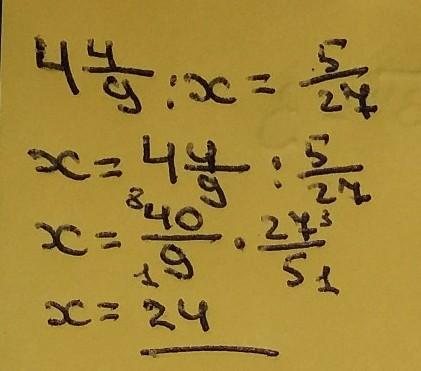 4 4/9 : x = 5/27
x = 4 4/9 : 5/27
x = ⁸40/₁9 · 27³/5₁
x = 24